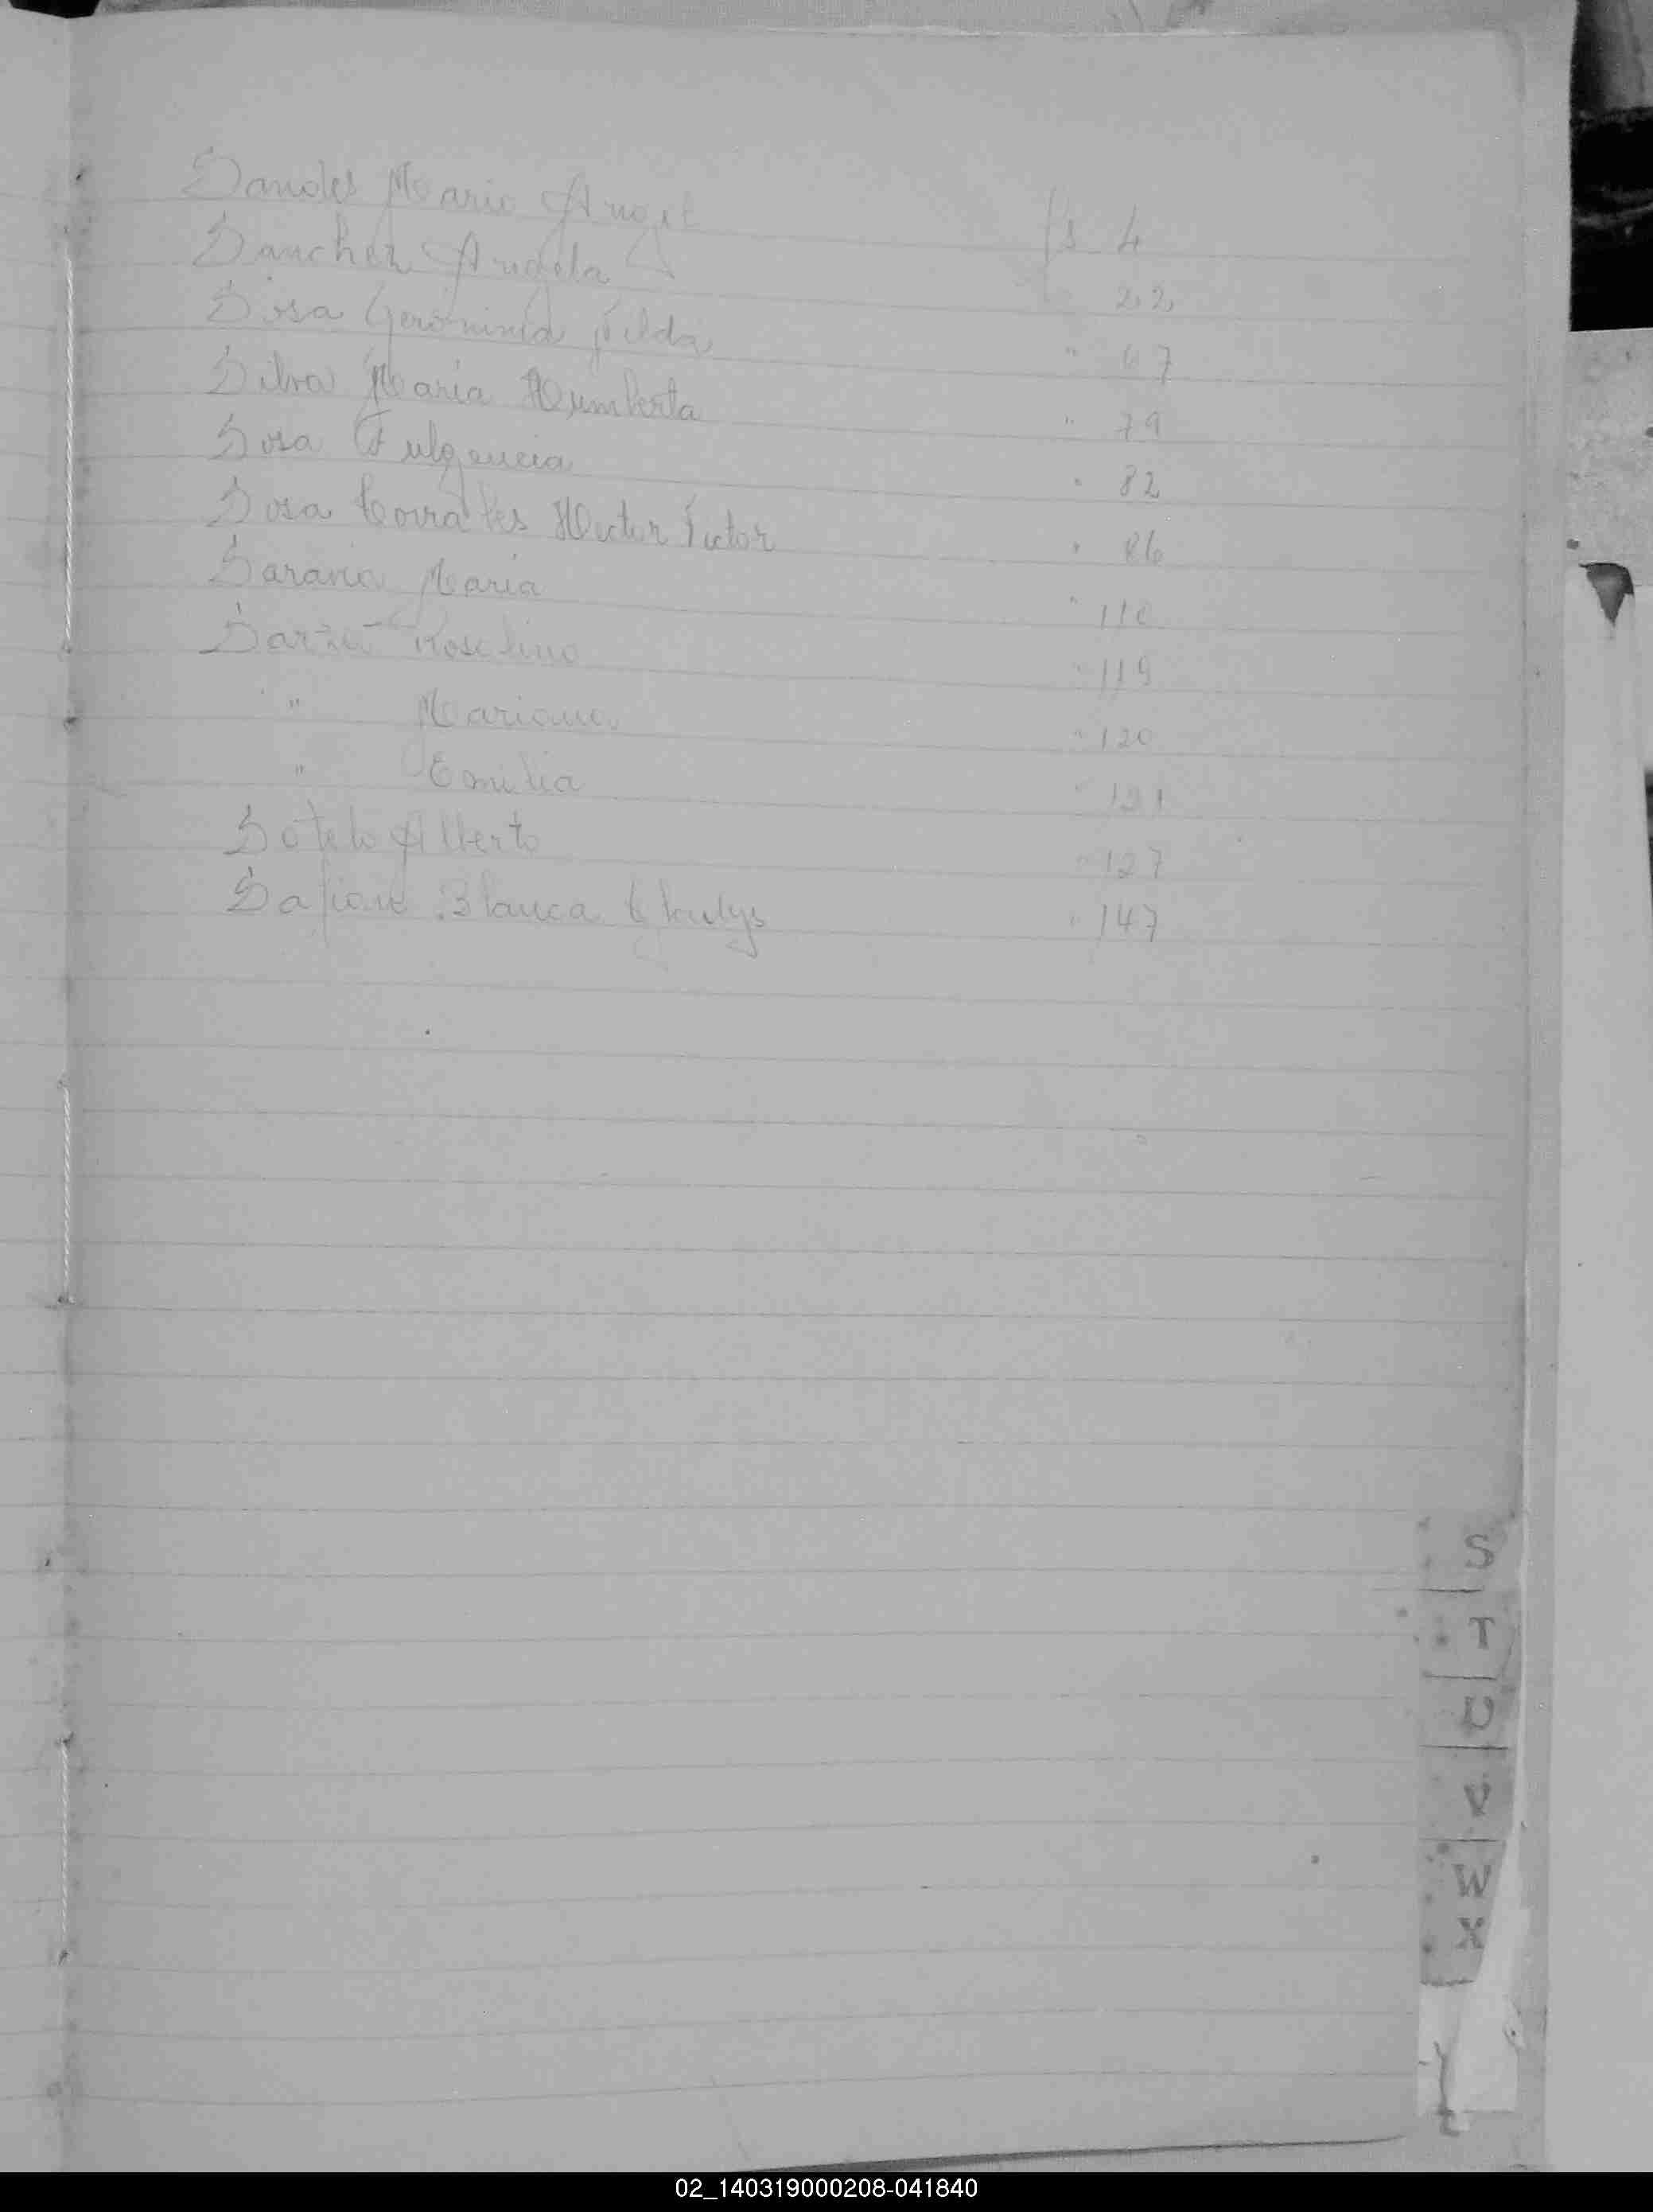 Mario Angel fs 4
Sanchez Angela 22
Sosa Geronima Ilda " 67
Silva Maria Humberta " 79
Sosa Fulgencia " 82
Sosa Corrales Hector Victor " 86
Saravia Maria "
Roselino " 119
" Mariana " 120
" Emilia " 121
Sotelo Alberto " 127
Blanca Gladys " 147
S
T
U
V
W
X
02_140319000208-041840